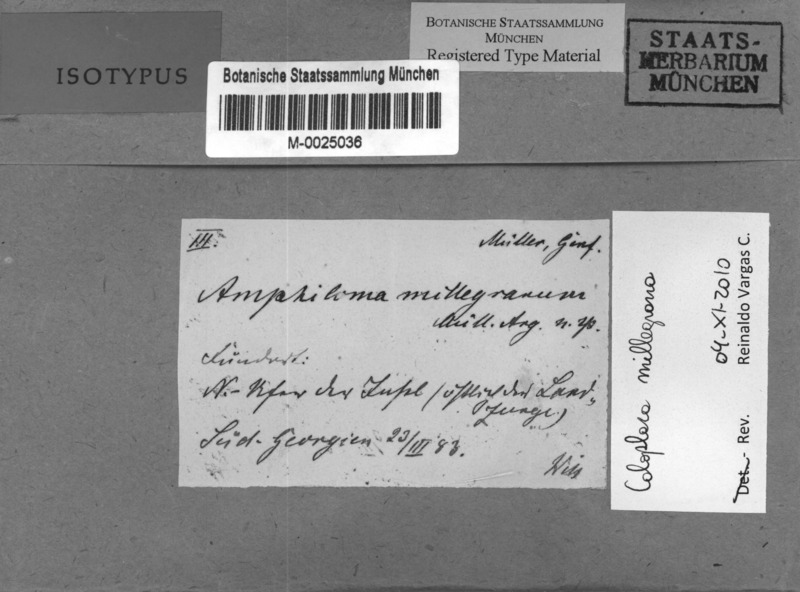 ISOTYPUS
Botanische Staatssammlung München
M-0025036
BOTANISCHE STAATSSAMMLUNG
MÜNCHEN
Registered Type Material
STAATS-
HERBARIUM
MÜNCHEN
III.
Müller, Genf.
Amphiloma millegranum
Müll. Arg. n. sp.
Fundort:
N.-Ufer der Insel (östlich der Land-
zunge)
Süd-Georgien 23/III 83.
Will
Caloplaca millegrana
04-XI-2010
Det. - Rev. Reinaldo Vargas C.